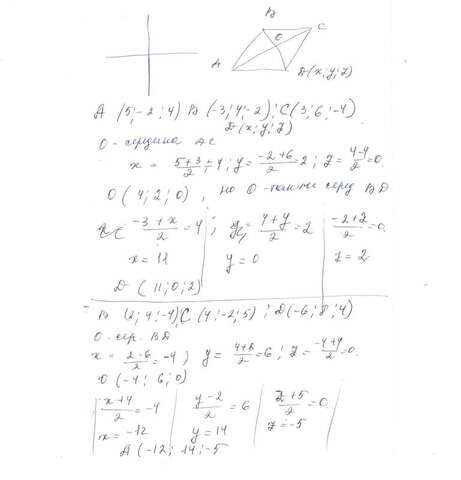 B
C
O
A
D(x; y; z)
A (5; -2; 4) B (-3; 4; -2); C (3; 6; -4)
D (x; y; z)
O - середина AC
x = 5+3/2 = 4; y = -2+6/2 = 2; z = 4-4/2 = 0
O (4; 2; 0), но O - также серед BD
-3+x/2 = 4; 4+y/2 = 2 -2+z/2 = 0
x = 11 y = 0 z = 2
D (11; 0; 2)
B (2; 4; -4) C (4; -2; 5); D (-6; 8; 4)
O - сер. BD
x = 2-6/2 = -4; y = 4+8/2 = 6; z = -4+4/2 = 0
O (-4; 6; 0)
x+4/2 = -4 y-2/2 = 6 z+5/2 = 0
x = -12 y = 14 z = -5
A (-12; 14; -5